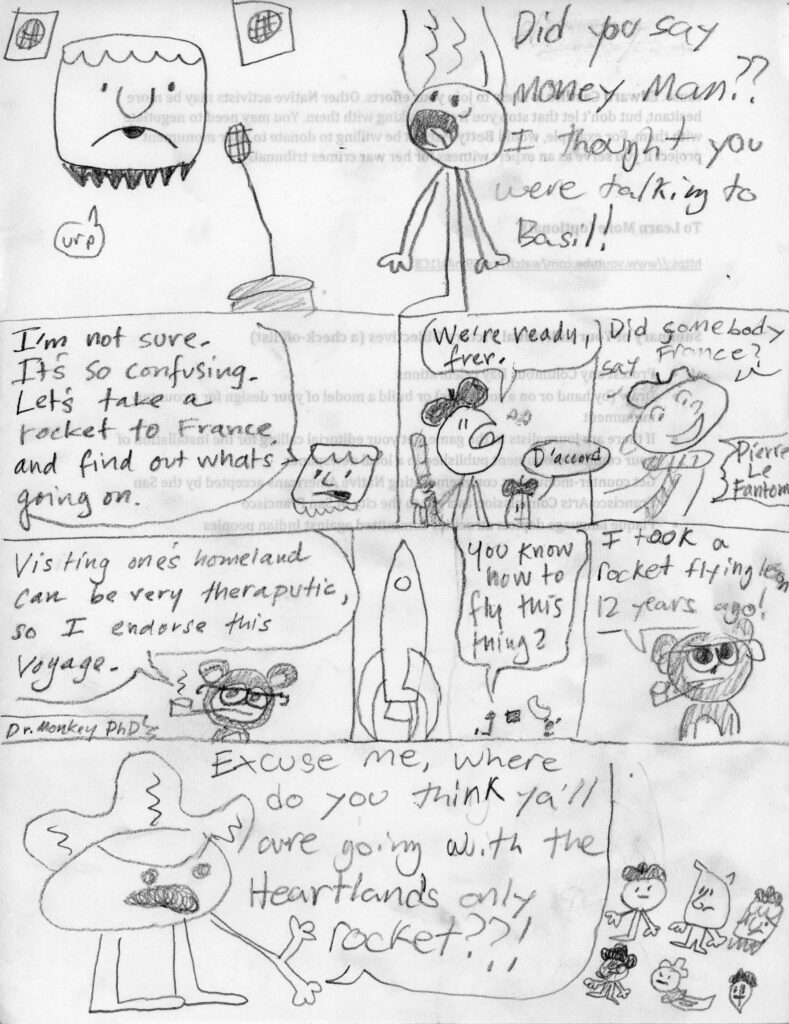 Did you say
Money Man??
I thought you
were talking to
Basil!
urp
I'm not sure.
It's so confusing.
Let's take a
rocket to France
and find out whats
going on.
We're ready,
frer.
D'accord
Did somebody
say France?
Pierre
Le
Fantom
Visiting one's homeland
can be very theraputic,
so I endorse this
voyage.
Dr. Monkey PhD
You know
how to
fly this
thing?
I took a
rocket flying lesson
12 years ago!
Excuse me, where
do you think ya'll
are going with the
Heartlands only
rocket??!